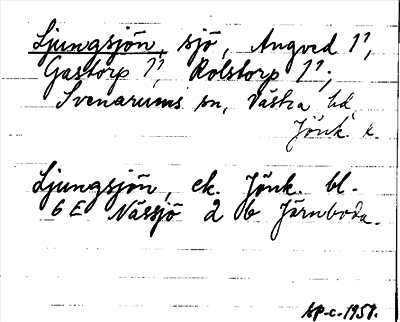 Ljungsjön, sjö, Angved 1¹,
Gastorp 1¹, Rolstorp 1¹;
Svenarums sn, Västra hd,
Jönk. l.
Ljungsjön, ek. Jönk. bl.
6 E Nässjö 2 b Järnboda.
AP-c. 1959.